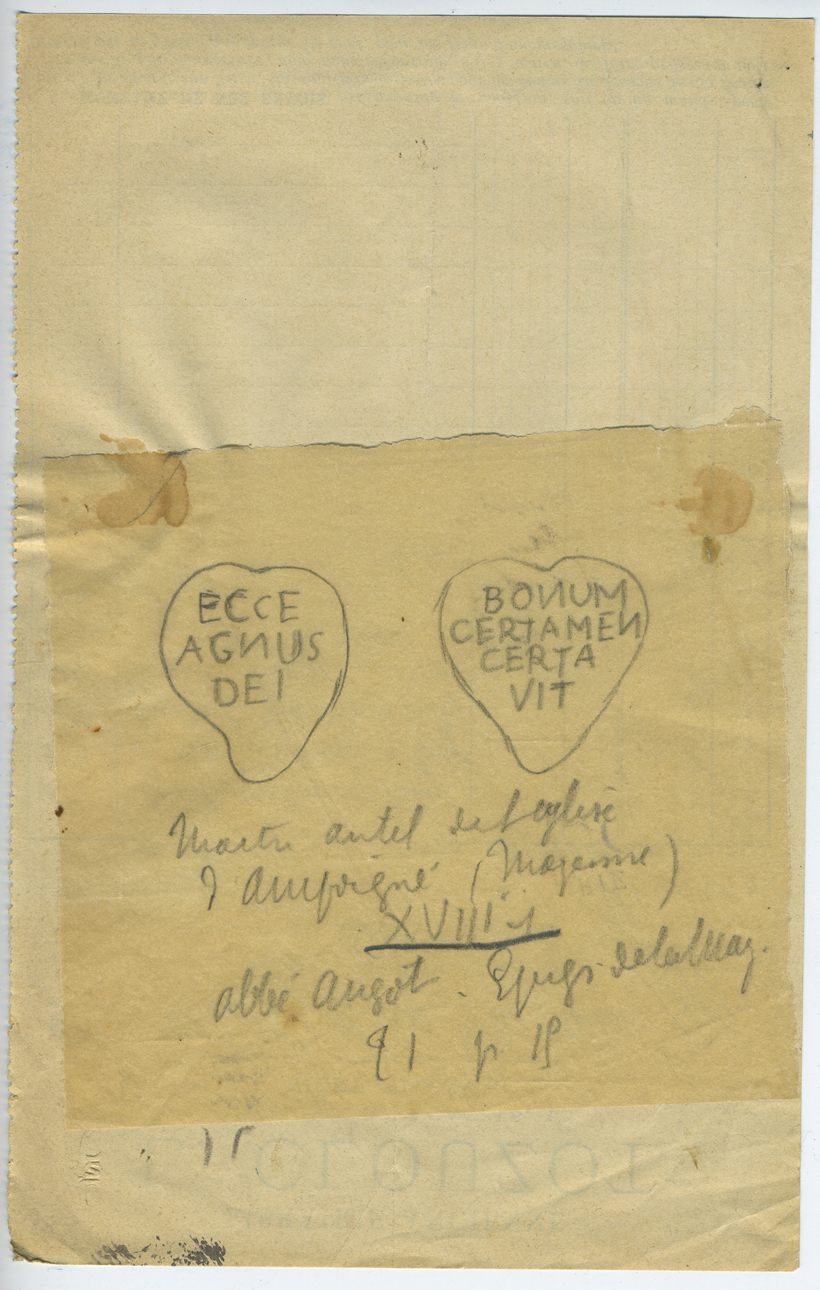 ECCE
AGNUS
DEI
BONUM
CERTAMEN
CERTA
VIT
Maitre autel de l'eglise
d'Ampoigné (Mayenne)
XVIII s
abbé Angot. Epigr. de la May.
T 1 p 15